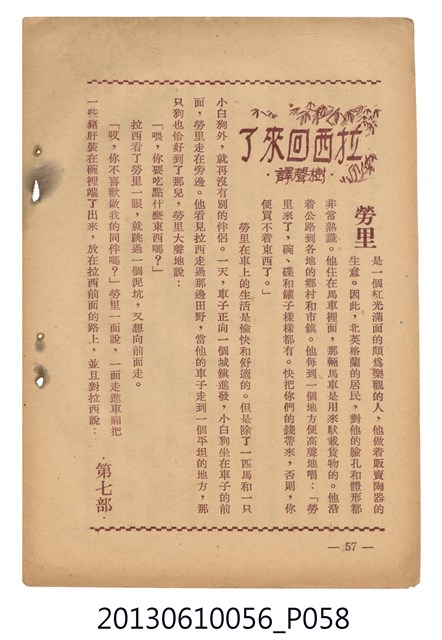 拉西回來了
·樹聲譯·
勞里
是一個紅光滿面的頗爲樂觀的人，他做着販賣陶器的
生意。因此，北英格蘭的居民，對他的臉孔和體形都
非常熟識。他住在馬車裡面，那輛馬車是用來馱載貨物的。他沿
着公路到各地的鄉村和市鎮。他每到一個地方便高聲地唱：「勞
里來了，碗、碟和罐子樣樣都有。快把你們的錢帶來，否則，你
便買不着東西了。」
勞里在車上的生活是愉快和舒適的。但是除了一匹馬和一只
小白狗外，就再沒有別的伴侶。一天，車子正向一個城鎮進發，小白狗坐在車子的前
面，勞里走在旁邊。他看見拉西走過那邊田野，當他的車子走到一個平坦的地方，那
只狗也恰好到了那兒，勞里大聲地說：
「喂，你要吃點什麼東西嗎？」
拉西看了勞里一眼，就跳過一個泥坑，又想向前面走。
「哎，你不喜歡做我的同伴嗎？」勞里一面說，一面走進車廂把
一些豬肝裝在碗裡端了出來，放在拉西前面的路上，並且對拉西說：
·第七部·
— 57 —
20130610056_P058